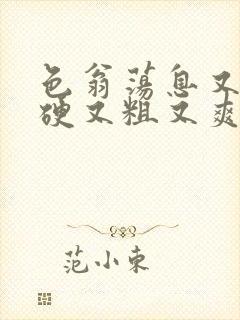 色翁荡息又
硬又粗又爽
范小东